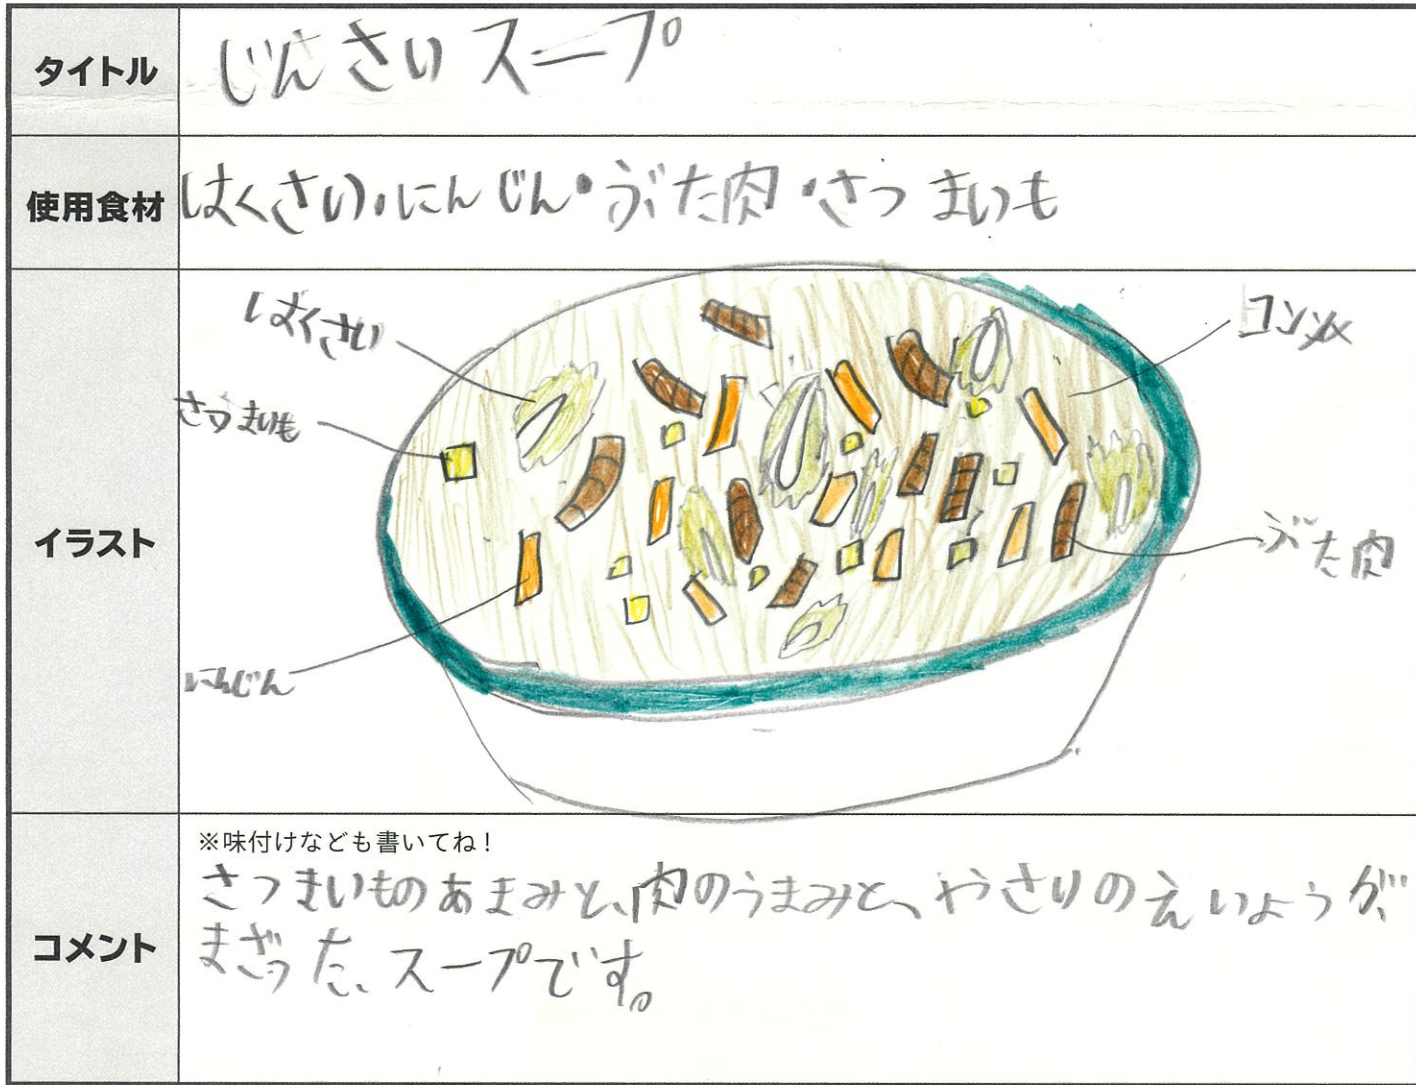 タイトル
じんさいスープ
使用食材
はくさい・にんじん・ぶた肉・さつまいも
イラスト
はくさい
さつまいも
にんじん
コンソメ
ぶた肉
コメント
※味付けなども書いてね!
さつまいものあまみと、肉のうまみと、やさいのえいようが、
まざった、スープです。